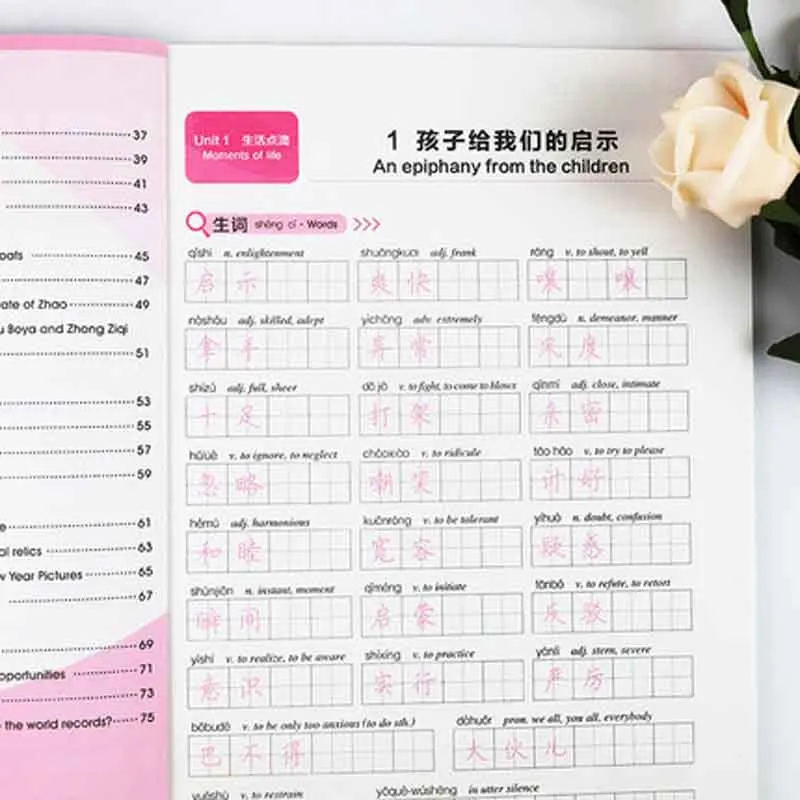 37
39
41
43
oats 45
47
ate of Zhao 49
u Boya and Zhong Ziqi
51
53
55
57
59
e 61
al relics 63
w Year Pictures 65
67
69
pportunities 71
73
the world records? 75
Unit 1 生活点滴
Moments of life
1 孩子给我们的启示
An epiphany from the children
生词 shēng cí · Words
qǐshì n. enlightenment shuǎngkuai adj. frank rǎng v. to shout, to yell
启示 爽快 嚷 嚷
náshǒu adj. skilled, adept yìcháng adv. extremely tàidù n. demeanor, manner
拿手 异常 态度
shízú adj. full, sheer dǎ jià v. to fight, to come to blows qīnmì adj. close, intimate
十足 打架 亲密
hūlüè v. to ignore, to neglect cháoxiào v. to ridicule tǎo hǎo v. to try to please
忽略 嘲笑 讨好
hémù adj. harmonious kuānróng v. to be tolerant yíhuò n. doubt, confusion
和睦 宽容 疑惑
shùnjiān n. instant, moment qǐméng v. to initiate fǎnbó v. to refute, to retort
瞬间 启蒙 反驳
yìshí v. to realize, to be aware shíxíng v. to practice yánlì adj. stern, severe
意识 实行 严厉
bābudé v. to be only too anxious (to do sth.) dàhuǒr pron. we all, you all, everybody
巴不得 大伙儿
yuēshù v. to restrain yāquè-wúshēng in utter silence